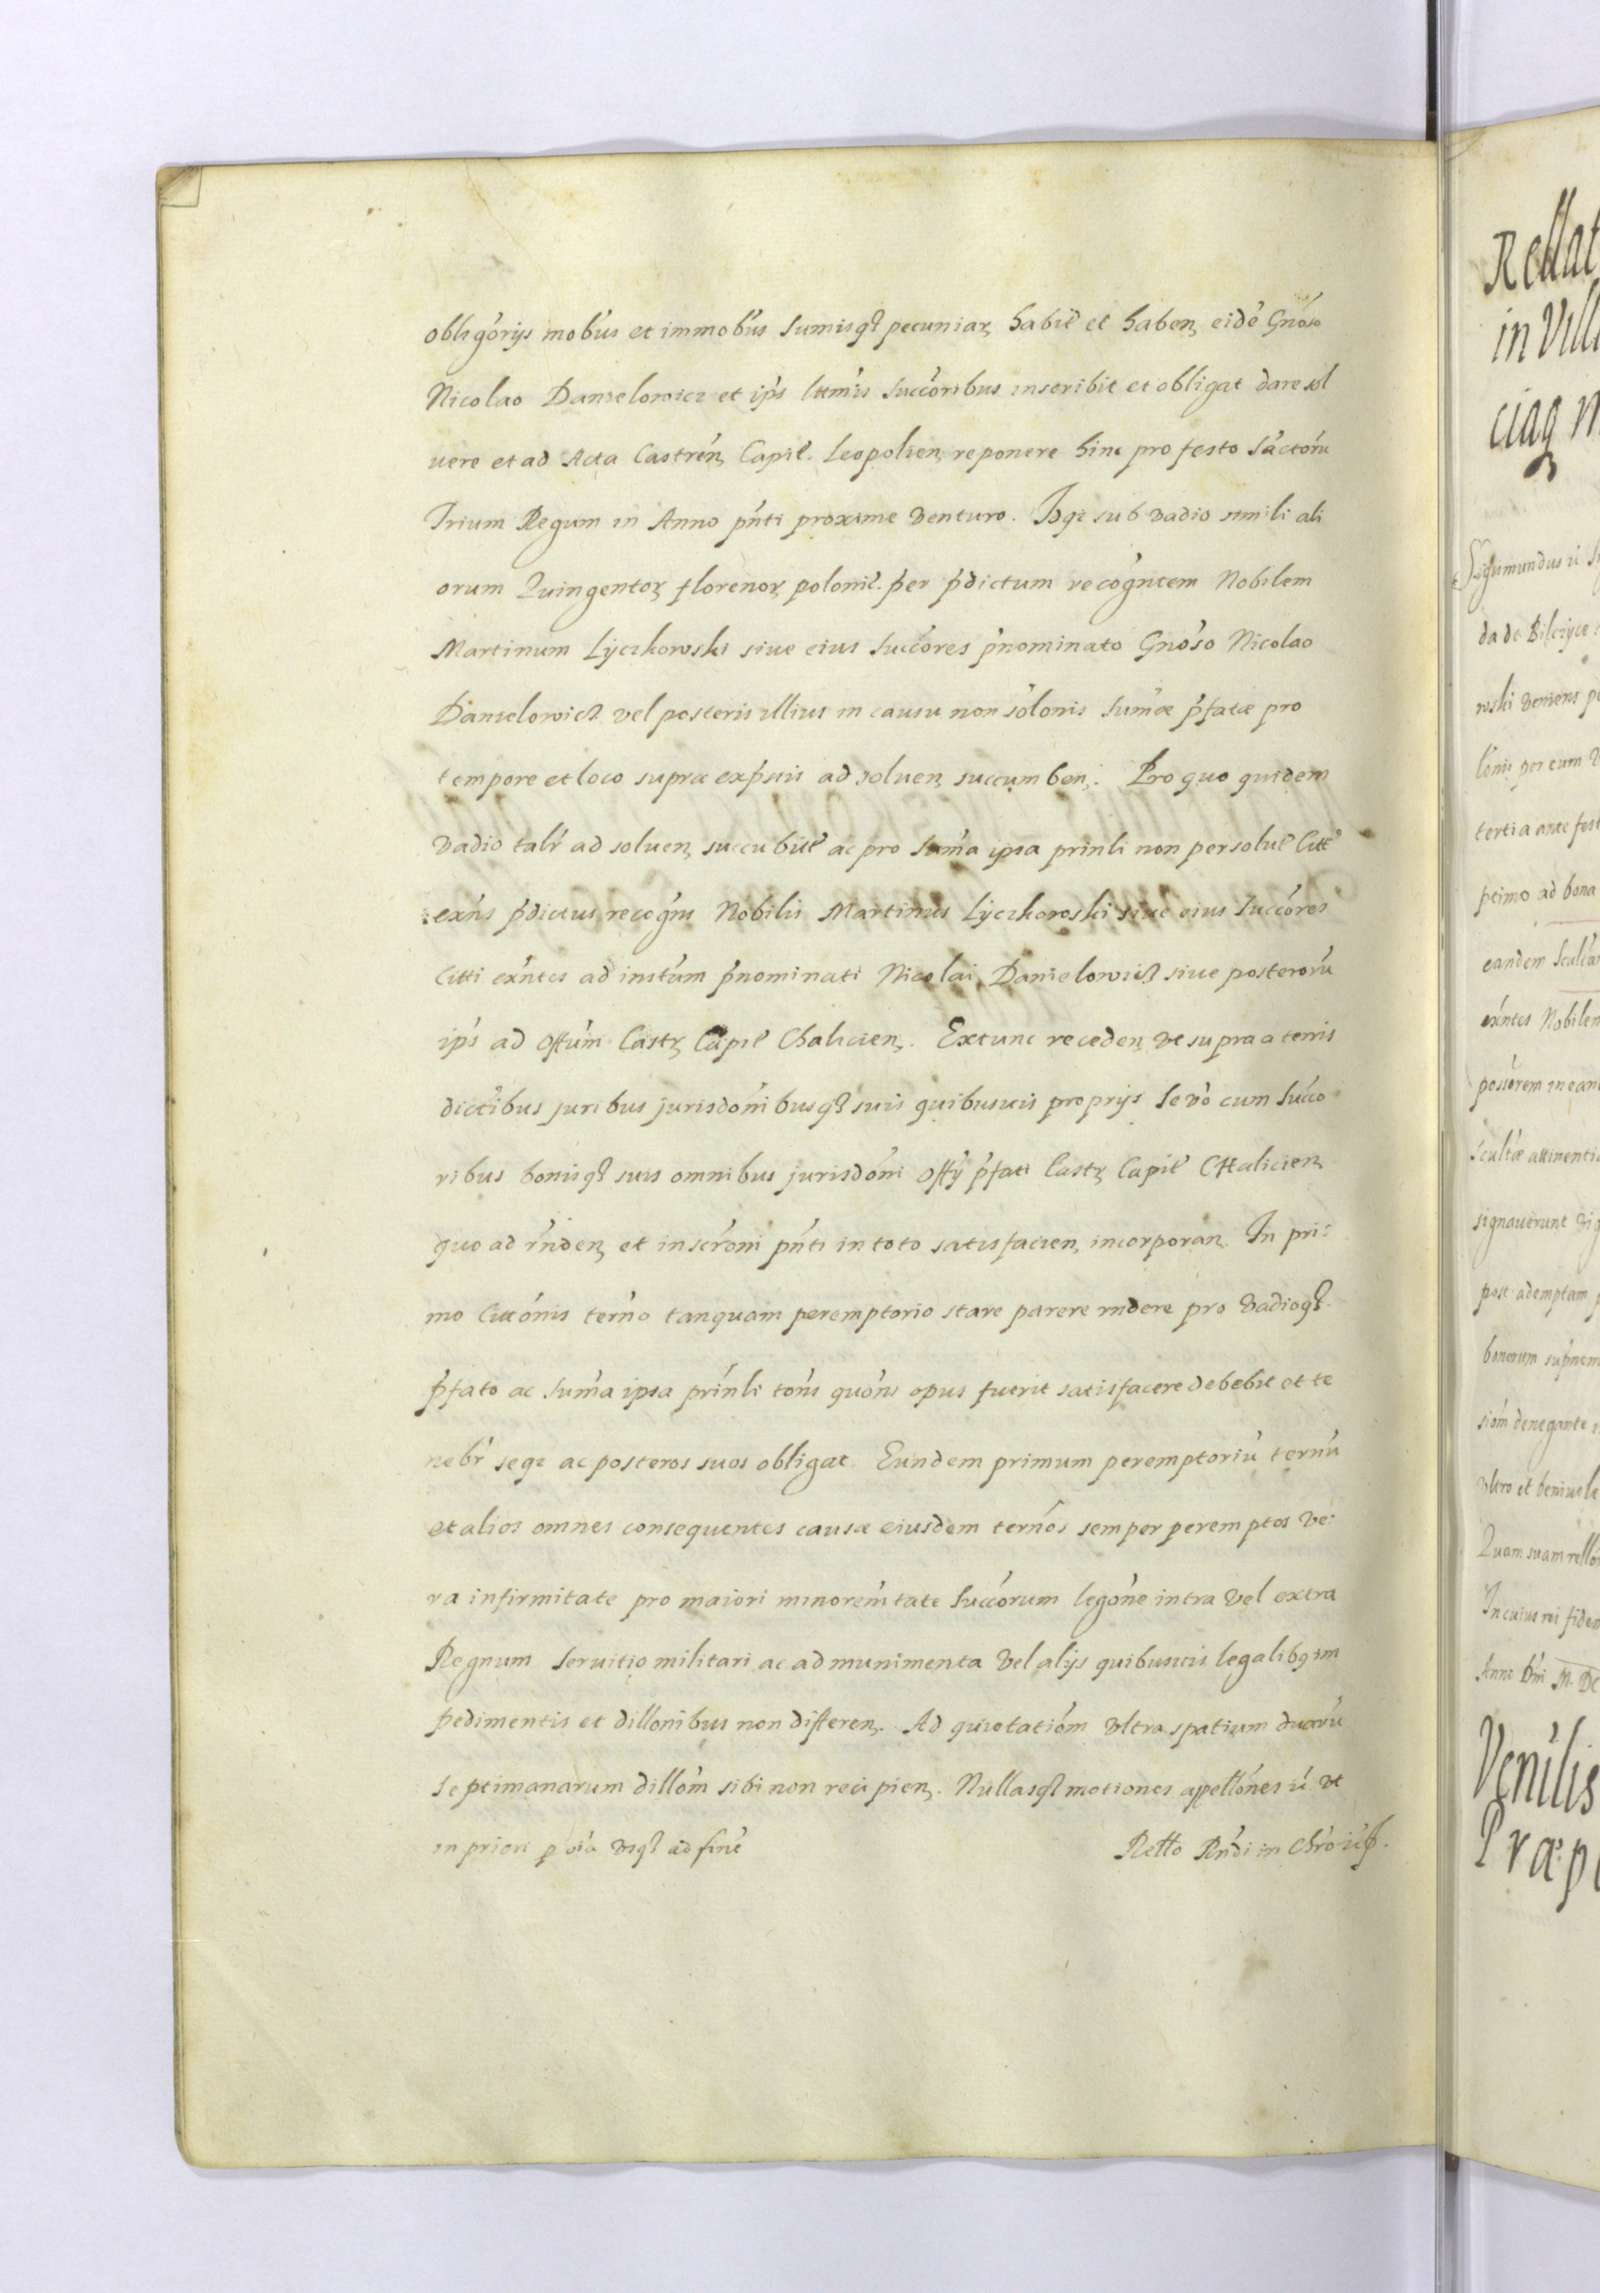 obligorijs mobus et immobus sumisq3 pecuniarz habit et habenz eide Gnoso
Nicolao Danielowicz et ips lttmis succoribus inscribit et obligat dare sol
vere et ad Acta Castrenz Capit. Leopolienz reponere hinc pro festo Sactoru
Trium Regum in Anno pnti proxime venturo. Idqz sub vadio simili ali
orum Quingentorz florenorz polonit. per pdictum recogntem Nobilem
Martinum Lyczkowski siue eius succores pnominato Gnoso Nicolao
Danielowicz vel posteris illius in causu non solonis Sumae pfatae pro
tempore et loco supra expssis ad soluenz succumbenz. Pro quo quidem
vadio talr ad soluenz succubit ac pro Suma ipsa prinli non persolut Citt
exns pdictus recogns Nobilis Martinus Lyczkowski siue eius succores
Citti exntes ad instam pnominati Nicolai Danielowicz siue posteroru
ips ad Offum Castrz Capit Chalicienz. Extunc recedenz ut supra a terris
dictibus juribus jurisdonibusq3 suis quibusuis proprijs Se vo cum succo
ribus bonisq3 suis omnibus jurisdoni Offy pfati Castrz Capit CHalicienz
quo ad rndenz et inscroni pnti in toto satisfacienz incorporanz. In pri:
mo Cittonis terno tanquam peremptorio stare parere rndere pro vadioq3
pfato ac Suma ipsa prinli tons quons opus fuerit satisfacere debebit et te
nebr seqz ac posteros suos obligat. Eundem primum peremptoriu ternu
et alios omnes consequentes causae eiusdem ternos semper peremptos ve:
ra infirmitate pro maiori minoremtate succorum legone intra vel extra
Regnum seruitio militari ac ad munimenta vel alijs quibusuis legalibq im
pedimentis et dillonibus non differenz. Ad quietatiom ultra spatium duaru
septimanarum dillom sibi non recipienz. Nullasq3 motiones appellones ii ut
in priori p oia usq3 ad fine
Retto Rndi in Chro
Rellat
in Vill
ciaq
da de Bilczyce
tertia ante fest
ptimo ad bona
eandem
exntes Nobilen
signauerunt
post ademptam
bonorum
denegante
Quam suam rello
In cuius rei fidem
Anno Dni M. DC
Venilis
Praep